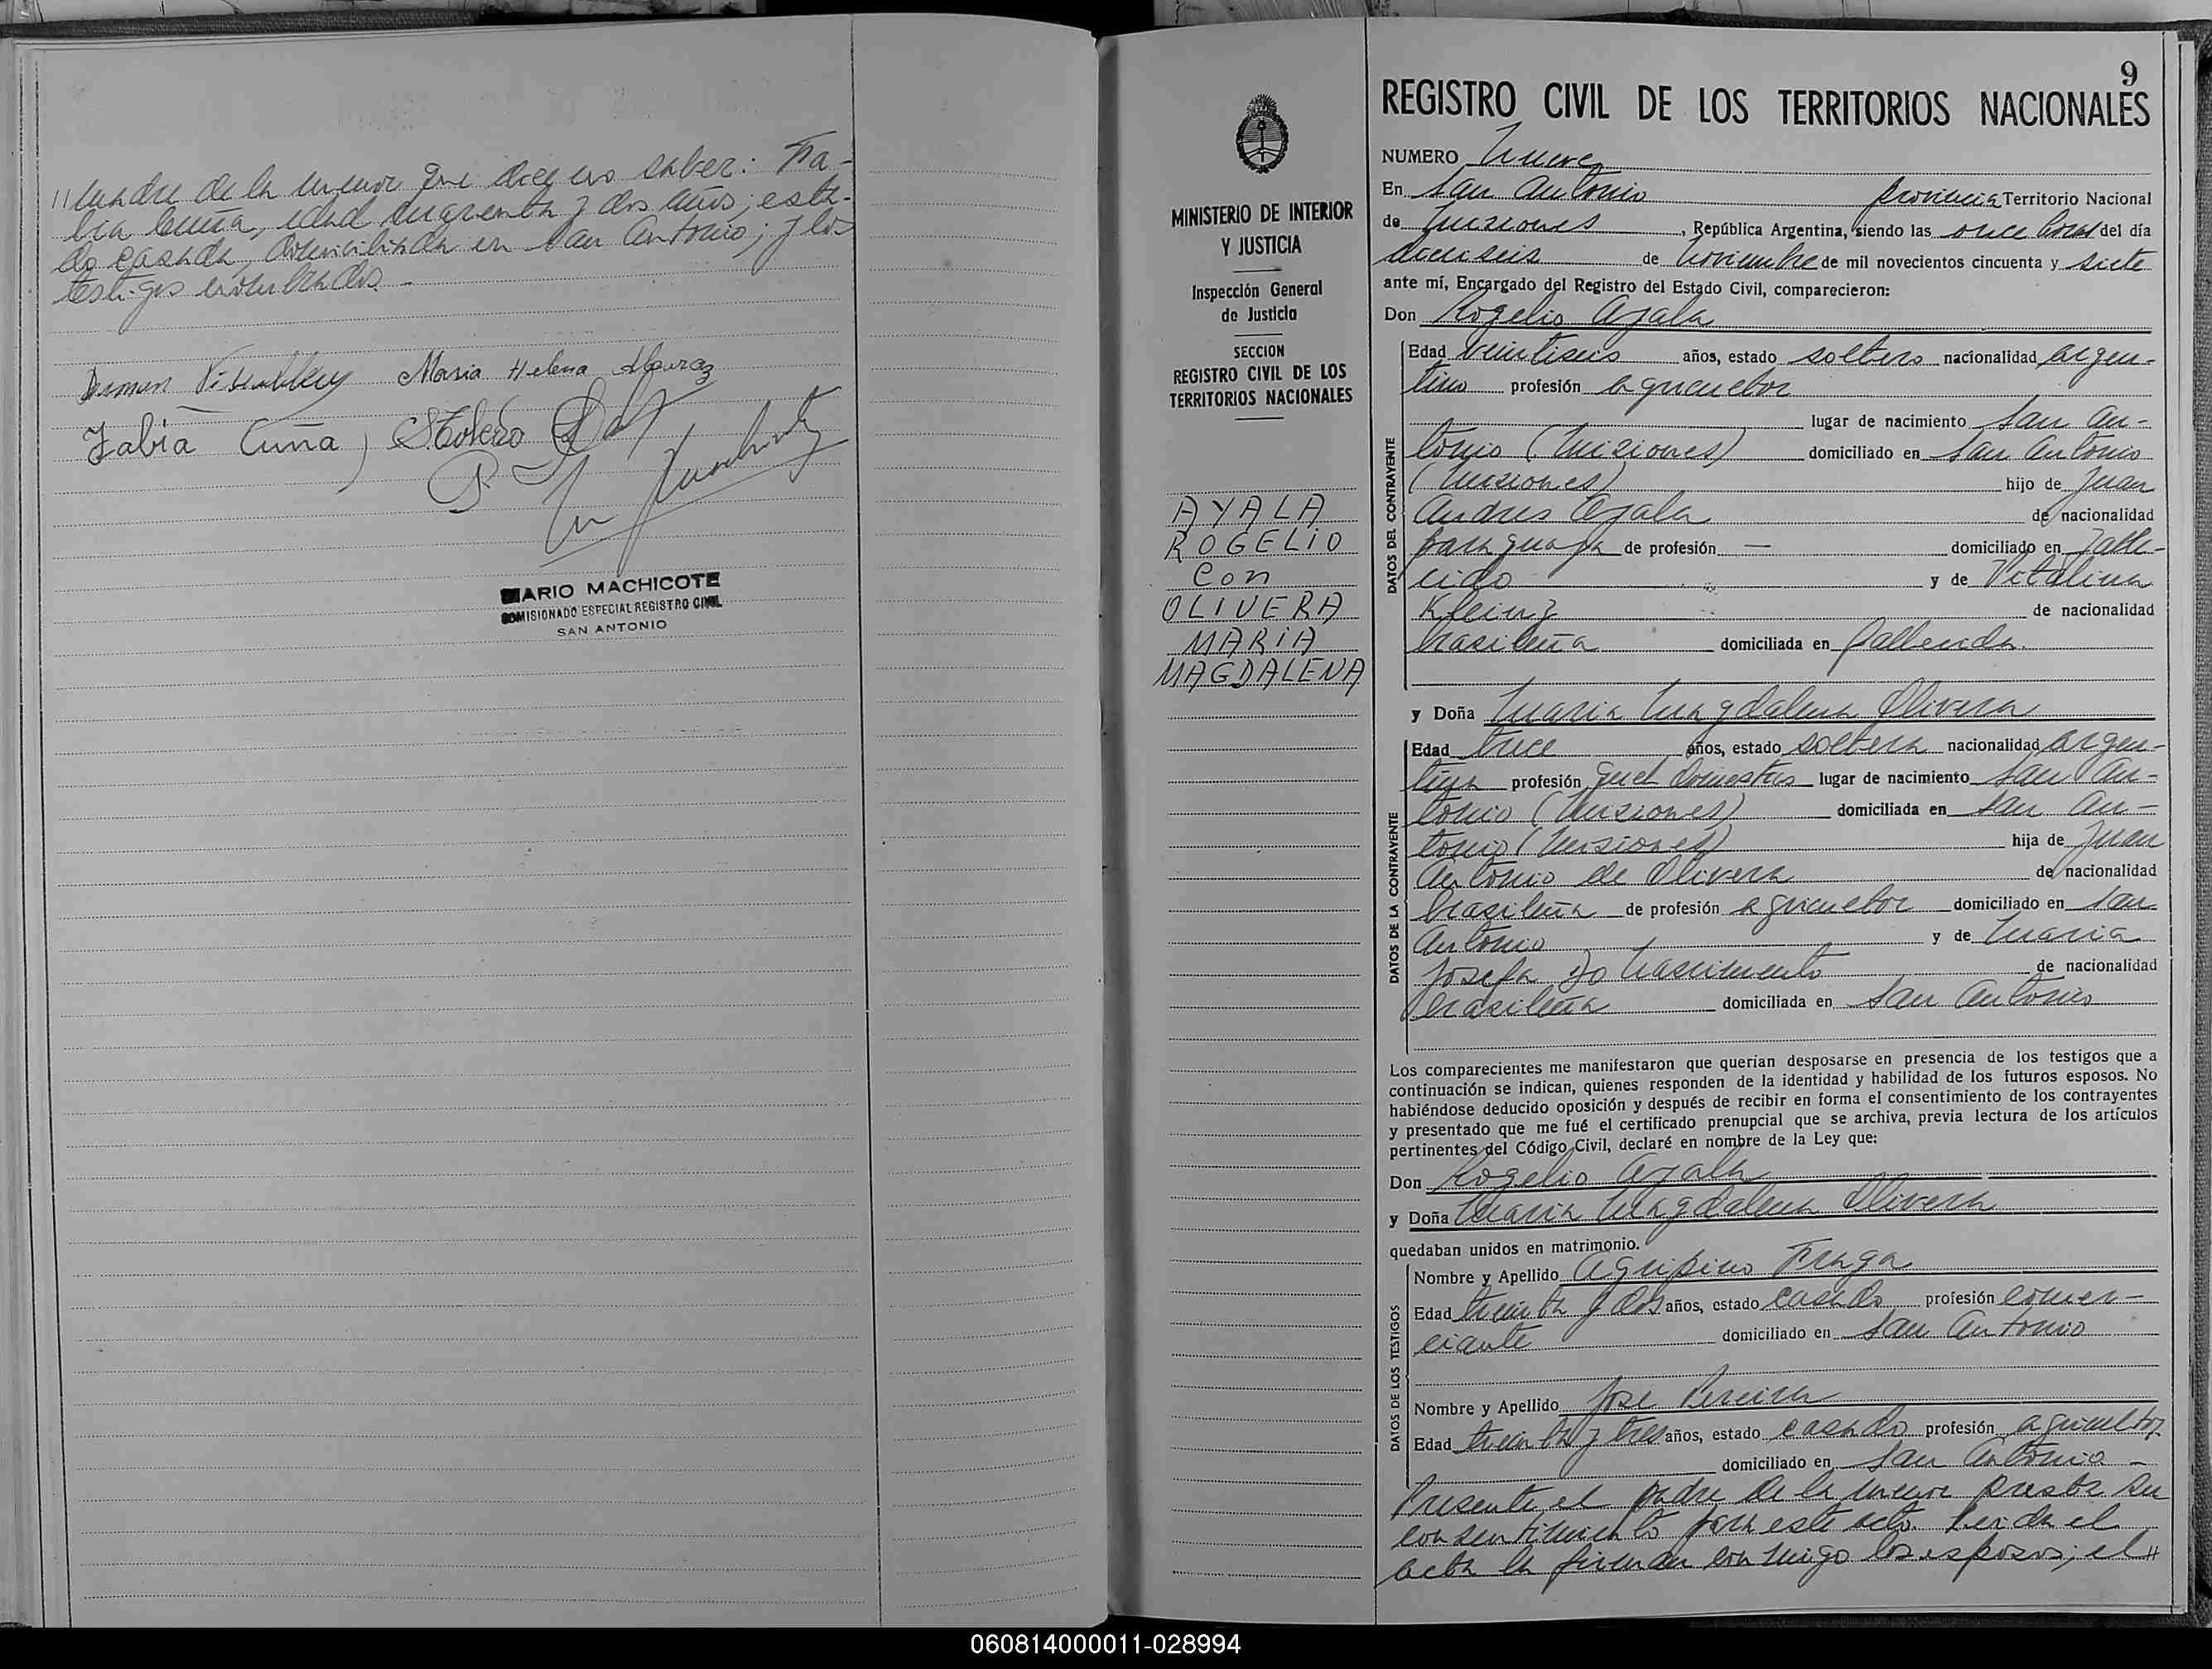 // madre de la menor que dice no saber: Fa-
bia Cuña, edad cuarenta y dos años, esta-
do casada, domiciliada en San Antonio; y los
testigos nombrados.-
Maria Helena
Fabia Cuña
MARIO MACHICOTE
COMISIONADO ESPECIAL REGISTRO CIVIL
SAN ANTONIO
MINISTERIO DE INTERIOR
Y JUSTICIA
Inspección General
de Justicia
SECCION
REGISTRO CIVIL DE LOS
TERRITORIOS NACIONALES
AYALA
ROGELIO
Con
OLIVERA
MARIA
MAGDALENA
9
REGISTRO CIVIL DE LOS TERRITORIOS NACIONALES
NUMERO Nueve
En San Antonio provincia Territorio Nacional
de Misiones, República Argentina, siendo las once horas del día
dieciseis de noviembre de mil novecientos cincuenta y siete
ante mí, Encargado del Registro del Estado Civil, comparecieron:
Don Rogelio Ayala
DATOS DEL CONTRAYENTE
Edad veintiseis años, estado soltero nacionalidad argen-
tino profesión agricultor
lugar de nacimiento San An-
tonio (Misiones) domiciliado en San Antonio
(Misiones) hijo de Juan
Andres Ayala de nacionalidad
paraguaya de profesión — domiciliado en Falle-
cido y de Vitalina
Kleinz de nacionalidad
brasileña domiciliada en fallecida.
y Doña Maria Magdalena Olivera
DATOS DE LA CONTRAYENTE
Edad trece años, estado soltera nacionalidad argen-
tina profesión queh domesticos lugar de nacimiento San An-
tonio (Misiones) domiciliada en San An-
tonio (Misiones) hija de Juan
Antonio de Olivera de nacionalidad
brasileña de profesión agricultor domiciliado en San
Antonio y de Maria
Josefa do Nascimento de nacionalidad
brasileña domiciliada en San Antonio
Los comparecientes me manifestaron que querían desposarse en presencia de los testigos que a
continuación se indican, quienes responden de la identidad y habilidad de los futuros esposos. No
habiéndose deducido oposición y después de recibir en forma el consentimiento de los contrayentes
y presentado que me fué el certificado prenupcial que se archiva, previa lectura de los artículos
pertinentes del Código Civil, declaré en nombre de la Ley que:
Don Rogelio Ayala
y Doña Maria Magdalena Olivera
quedaban unidos en matrimonio.
DATOS DE LOS TESTIGOS
Nombre y Apellido Agripino Fraga
Edad treinta y dos años, estado casado profesión comer-
ciante domiciliado en San Antonio
Nombre y Apellido Jose Pereira
Edad treinta y tres años, estado casado profesión agricultor
domiciliado en San Antonio -
Presente el padre de la menor presta su
consentimiento para este acto. Leida el
acta la firman conmigo los esposos; el //
060814000011-028994